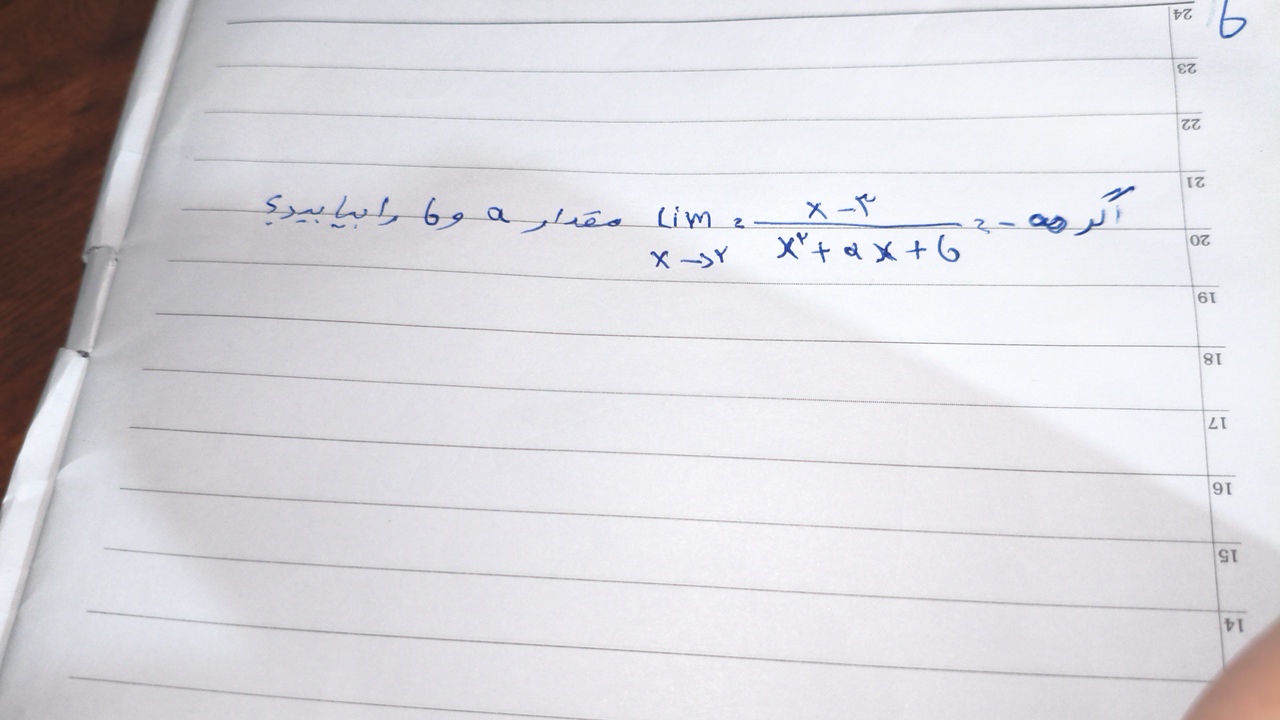 اگر -∞ = \frac{x-۳}{x^۲+ax+b} = \lim_{x→۲} مقدار a و b را بیابید؟
24
23
22
21
20
19
18
17
16
15
14